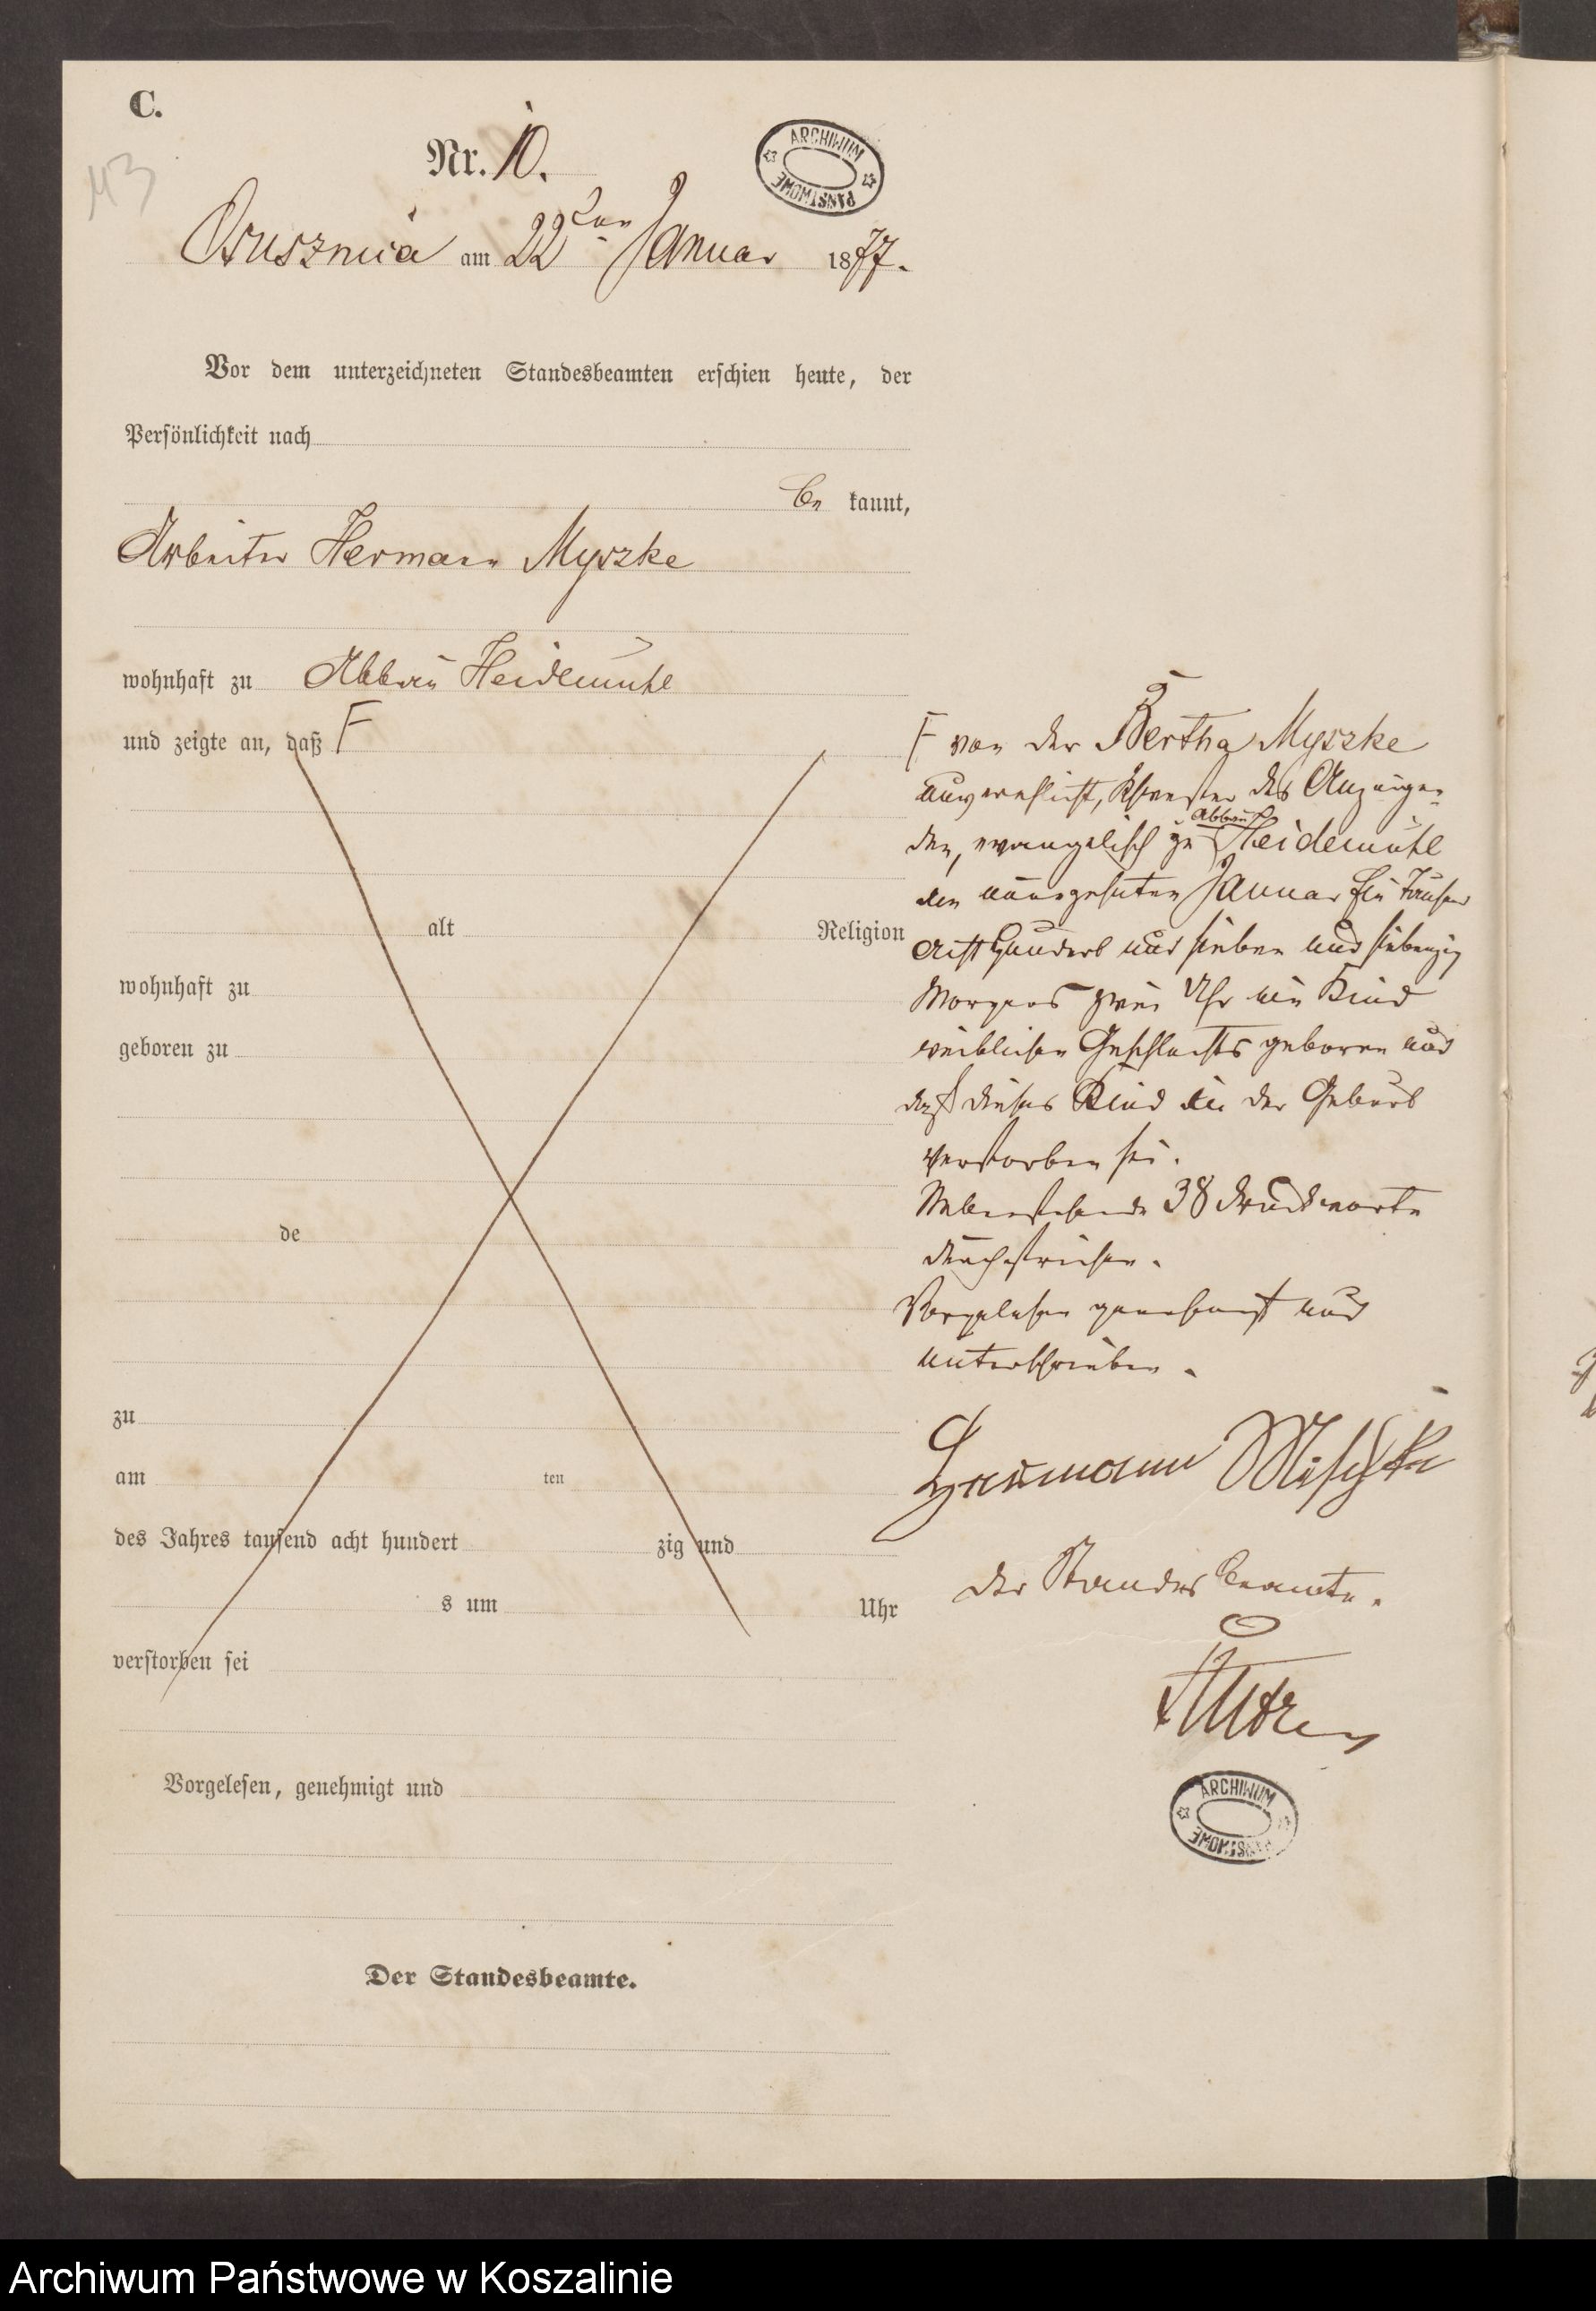 C.
Nr. 10.
113
ARCHIWUM PAŃSTWOWE
Osusznica am 22ten Januar 1877.
Vor dem unterzeichneten Standesbeamten erschien heute, der
Persönlichkeit nach
be kannt,
Arbeiter Hermann Myszke
wohnhaft zu Abbau Heidemühl
und zeigte an, daß F
alt Religion
wohnhaft zu
geboren zu
de
zu
am ten
des Jahres tausend acht hundert zig und
s um Uhr
verstorben sei
Vorgelesen, genehmigt und
Der Standesbeamte.
F von der Bertha Myszke
unverehlicht, Schwester des Anzeigen
den, evangelisch zu Abbau Heidemühl
den neunzehnten Januar Ein tausend
achthundert und sieben und siebenzig
Morgens zwei Uhr ein Kind
weiblichen Geschlechts geboren und
daß dieses Kind in der Geburt
verstorben sei.
Nebenstehende 38 Druckworte
durchstrichen.
Vorgelesen genehmigt und
unterschrieben.
Hermann Mischke
Der Standesbeamte.
ARCHIWUM PAŃSTWOWE
Archiwum Państwowe w Koszalinie